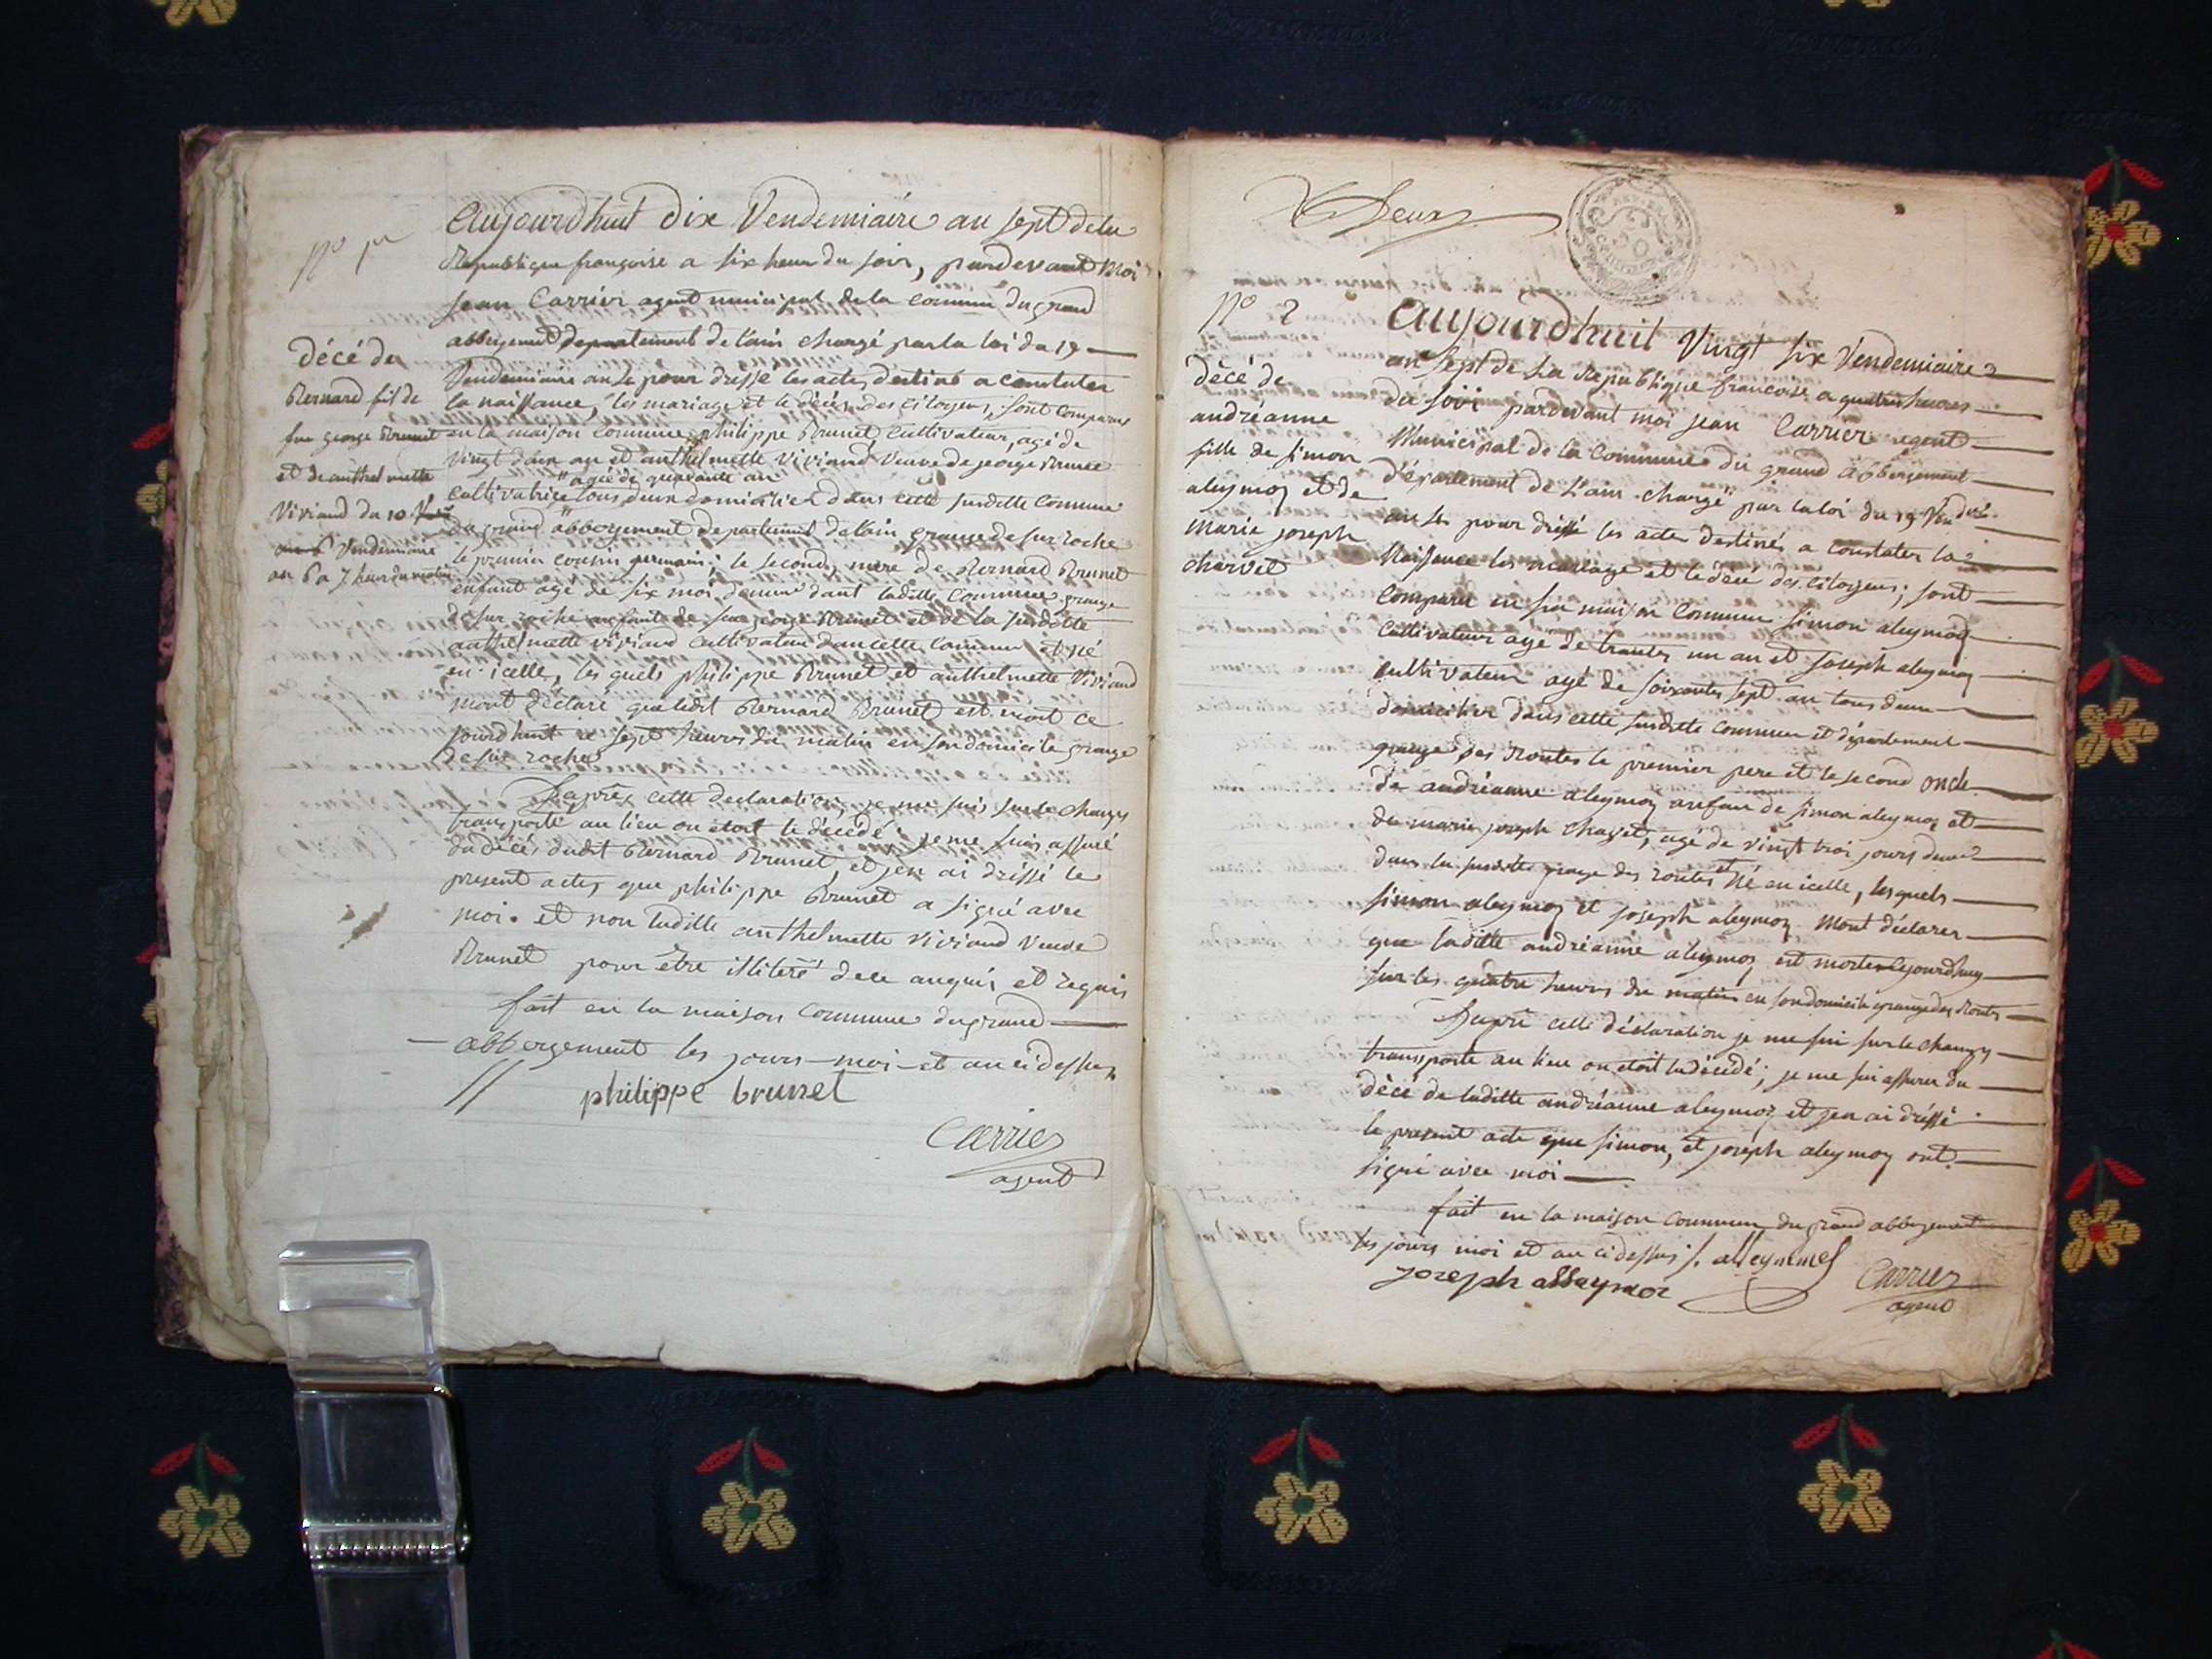 No 1er
Décé de
Bernard fils de
feu george Brunet
et de anthelmette
Viviand du 10
Vendemiaire
an 6 a 7 heures du matin
Aujourdhuit dix Vendemiaire an sept de la
Republique françoise a six heure du soir, pardevant moi
Jean Carrier agent municipal de la commune du grand
abbergement departement de l'ain chargé par la loi du 19
Vendemiaire an 4 pour dressé les actes destiné a constater
la naissance, les mariage et le décès des citoyens, sont comparus
en la maison commune philippe Brunet, cultivateur, agé de
vingt deux an et anthelmette Viviand Veuve de george Brunet
agée de quarante an
cultivatrice tous deux domicilier dans cette susditte commune
du grand abbergement departement de l'ain grange de sur roche
le premier cousin germain; le second, mere de Bernard Brunet
enfant agé de six mois demeuré dant laditte commune grange
de sur roche enfant de feu george Brunet et de la susditte
anthelmette viviand cultivateur dans cette commune et né
en icelle, les quels philippe Brunet et anthelmette Viviand
mont déclaré que ledit Bernard Brunet est mort ce
jourdhuit a sept heures du matin en son domicile grange
de sur roche
Daprès cette declaration, je me suis sur le champs
transporté au lieu ou étoit le décédé, je me suis assuré
du décés dudit Bernard Brunet, et jen ai dréssé le
present actes que philippe Brunet a signé avec
moi. et non laditte anthelmette viviand Veuve
Brunet pour être illiteré de ce anquis et requis
fait en la maison commune du grand
abbergement les jours moi et an ci dessus
philippe brunet
Carrier
agent
Deux
50
No 2
décé de
andréanne
fille de simon
aleymoz et de
Marie joseph
charvet
Aujourdhuit Vingt six Vendemiaire
an sept de la Republique francoise a quatres heures
du soir pardevant moi jean Carrier agent
Municipal de la commune du grand abbergement
département de L'ain chargé par la loi du 19 Vendre
an 4 pour dréssé les actes destinés a constater la
Naissance les mariage et le décé des citoyens; sont
comparu en la maison commune simon aleymoz
cultivateur agé de trantes un an et joseph aleymoz
cultivateur agé de soixantes sept an tous deux
domicilier dans cette susditte commune et département
grange des Routes le premier pere et le second oncle
de andréanne aleymoz enfant de simon aleymoz et
de marie joseph charvet, agé de vingt troi jours demeuré
dans la susditte grange des routes et né en icelle, lesquels
simon aleymoz et joseph aleymoz Mont déclarer
que laditte andréanne aleymoz est morte cejourdhuy
sur les quatre heures du matin en son domicile grange des Routes
Daprè cette déclaration je me sui sur le champ
transporté au lieu ou etoit la décédé; je me sui assurer du
décé de laditte andréanne aleymoz et jen ai dréssé
le present acte que simon, et joseph aleymoz ont
signé avec moi
fait en la maison commune du grand abbergement
les jours moi et an ci dessus s. alleynmes
joseph alleymoz
Carrier
agent